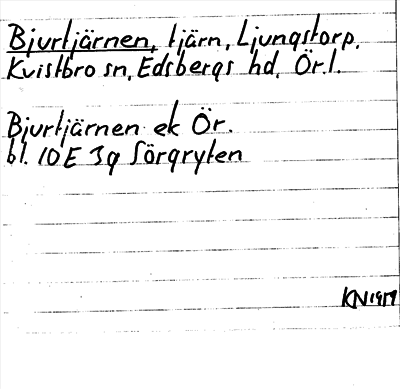 Bjurtjärnen, tjärn, Ljungstorp,
Kvistbro sn, Edsbergs hd, Ör.l.
Bjurtjärnen ek Ör.
bl. 10E 3g Sörgryten
KN1917